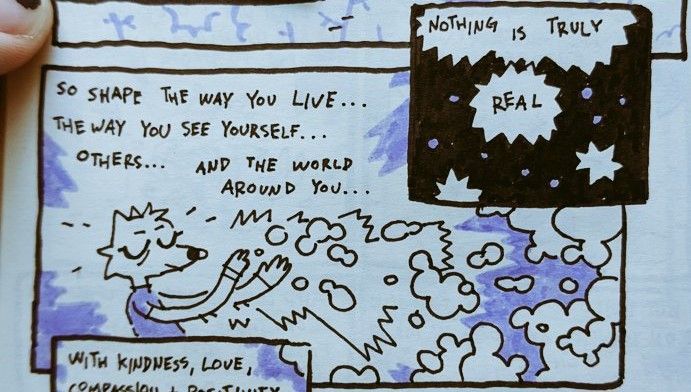 NOTHING IS TRULY
REAL
SO SHAPE THE WAY YOU LIVE...
THE WAY YOU SEE YOURSELF...
OTHERS... AND THE WORLD
AROUND YOU...
WITH KINDNESS, LOVE,
COMPASSION + POSITIVITY